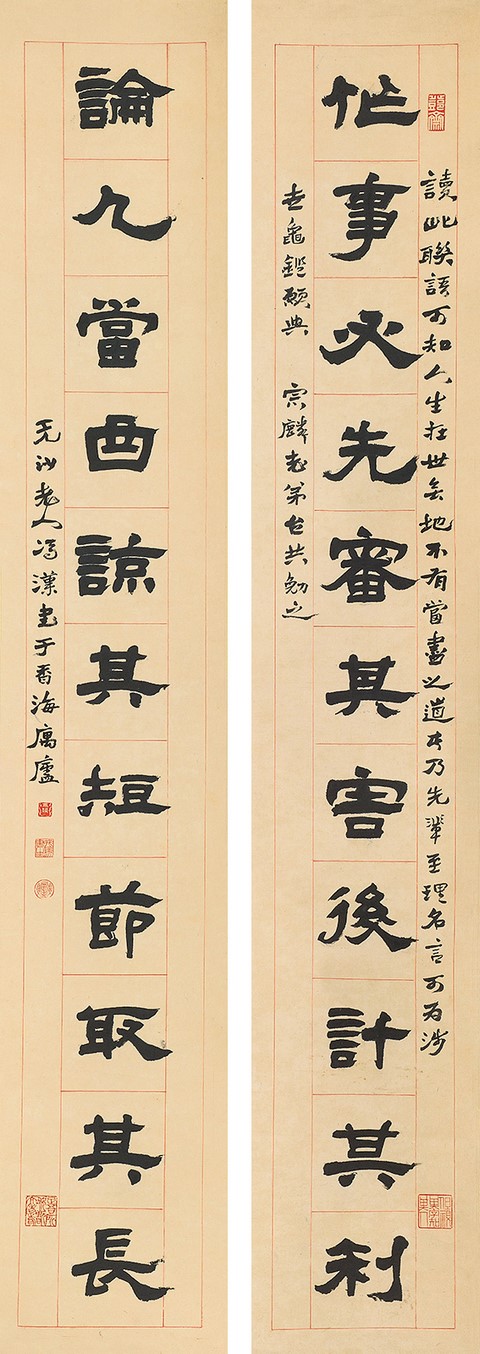 讀此聯語可知人生在世無地不有當盡之道乃先輩至理名言可為涉
作事必先審其害後計其利
世龜鑑願與 宗麟老弟台共勉之
論人當曲諒其短節取其長
无沙老人馮漢書于香海寓廬